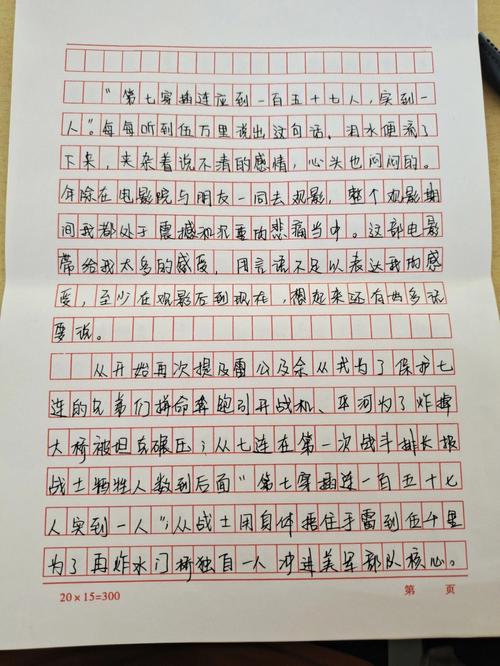 “第七穿插连应到一百五十七人，实到一
人”。每每听到伍万里说出这句话，泪水便流了
下来，夹杂着说不清的感情，心头也闷闷的。
年除在电影院与朋友一同去观影，整个观影期
间我都处于震撼和沉重的悲痛当中。这部电影
带给我太多的感受，用言语不足以表达我的感
受，至少在观影后到现在，想起来还有很多说
要说。
从开始再次提及雷公及余从戎为了保护七
连的兄弟们拼命奔跑引开战机、平河为了炸掉
大桥被坦克碾压；从七连在第一次战斗排长报
战士牺牲人数到后面“第七穿插连一百五十七
人实到一人”；从战士用身体捂住手雷到伍千里
为了再炸水门桥独自一人冲进美军部队核心。
20×15=300 第 页